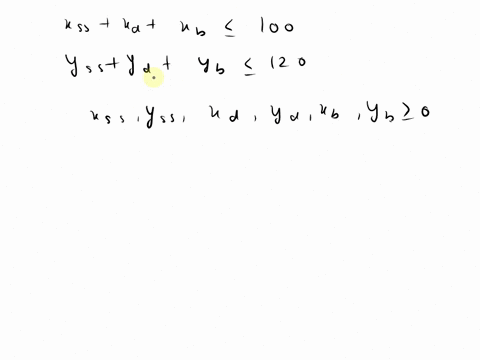 x_ss + x_d + x_b ≤ 100
y_ss + y_d + y_b ≤ 120
x_ss, y_ss, x_d, y_d, x_b, y_b ≥ 0